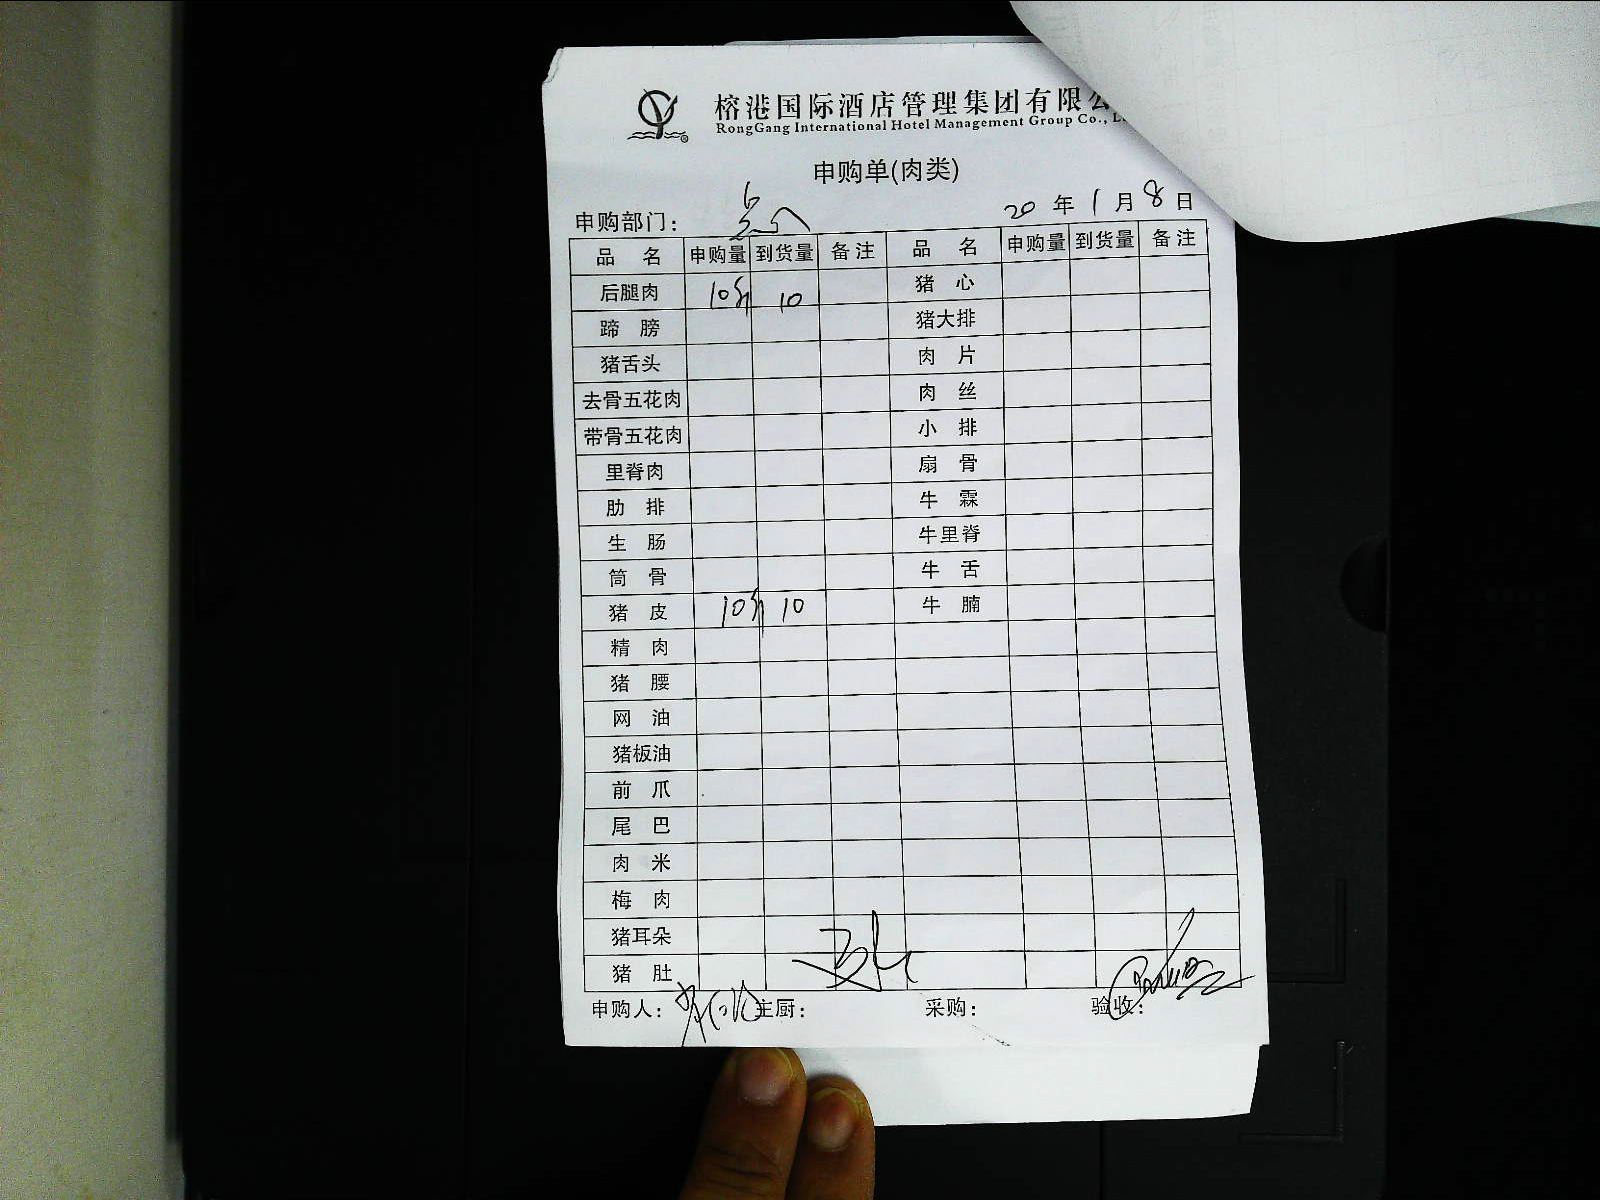 榕港国际酒店管理集团有限公
RongGang International Hotel Management Group Co., L
申购单(肉类)
申购部门：
20 年 1 月 8 日
品 名 申购量 到货量 备注 品 名 申购量 到货量 备注
后腿肉 10斤 10 猪 心
蹄 膀 猪大排
猪舌头 肉 片
去骨五花肉 肉 丝
带骨五花肉 小 排
里脊肉 扇 骨
肋 排 牛 霖
生 肠 牛里脊
筒 骨 牛 舌
猪 皮 10斤 10 牛 腩
精 肉
猪 腰
网 油
猪板油
前 爪
尾 巴
肉 米
梅 肉
猪耳朵
猪 肚
申购人： 主厨： 采购： 验收：